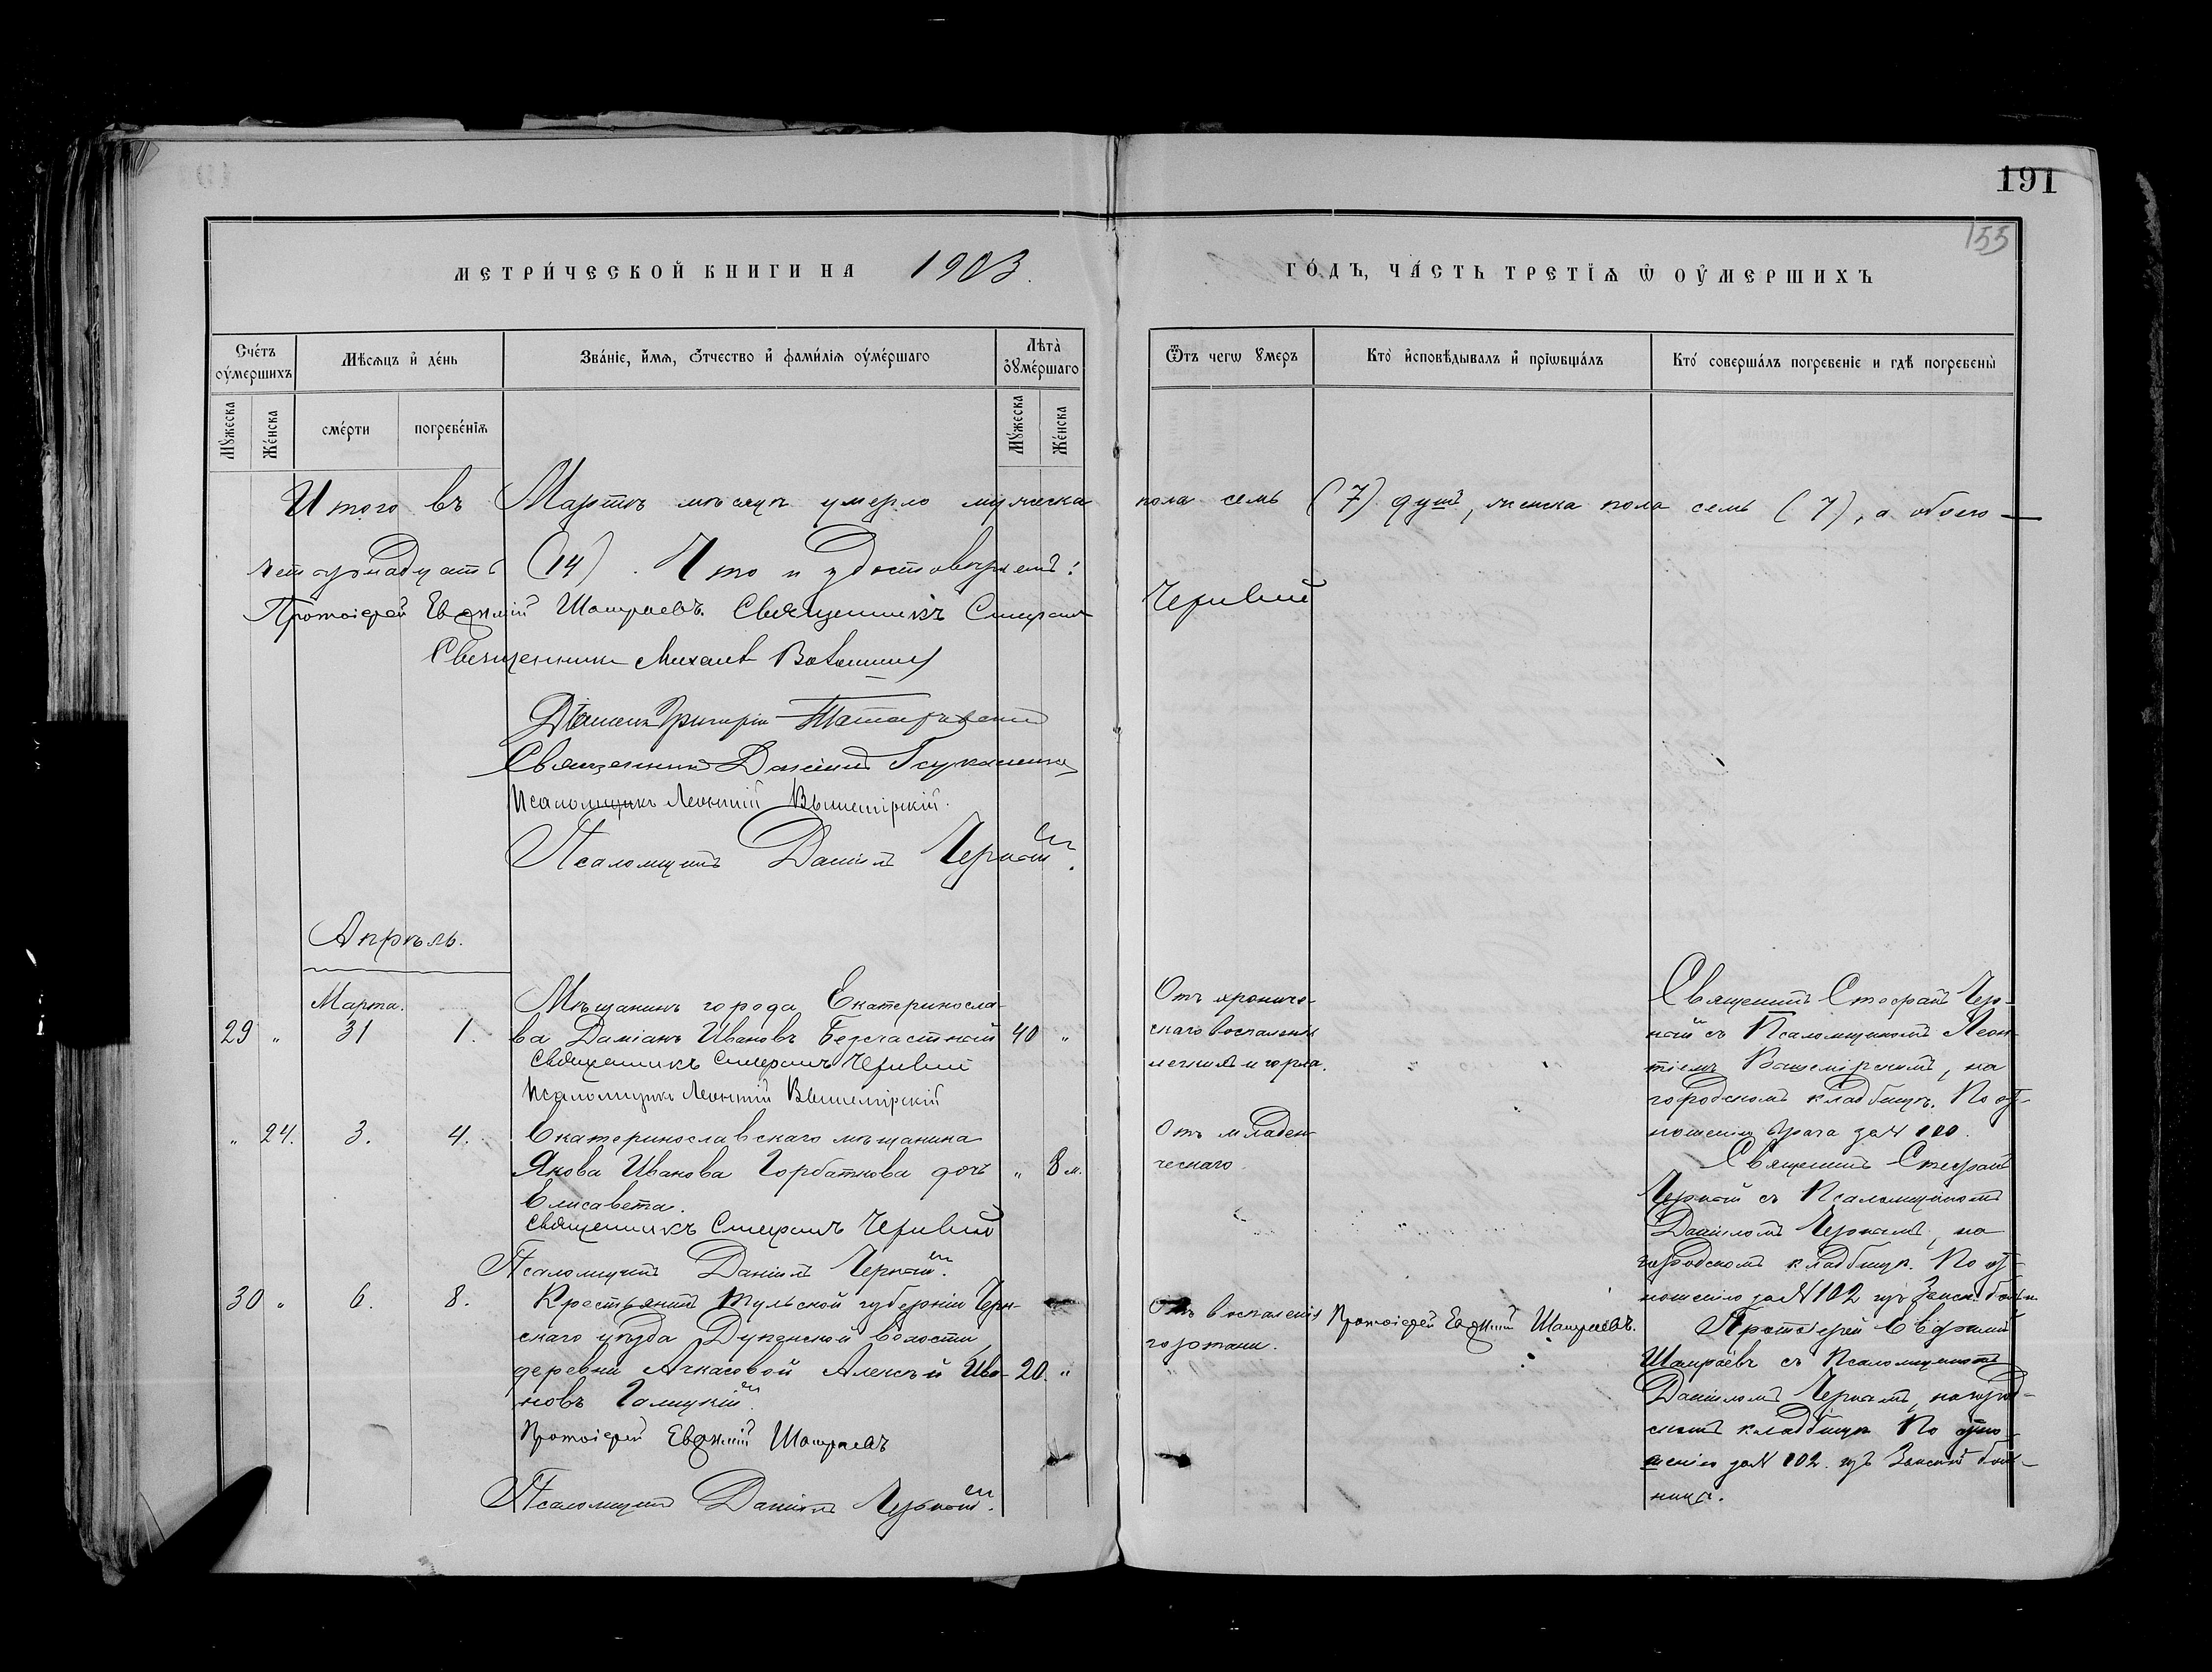 191
155
МЕТРИ́ЧЕСКОЙ КНИГИ НА 1903. ГО́ДЪ, ЧА́СТЬ ТРЕТІѦ Ѽ ОУ҆МЕРШИХЪ
Сче́тъ оу҆ме́ршихъ
Мѣ́сѧцъ и҆ де́нь
Зва́ніе, и҆́мѧ, ѻ҆́тчество и҆ фами́лїѧ оу҆ме́ршаго
Лѣта̀ оу҆ме́ршаго
Ѿтъ чегѡ ꙋмеръ
Кто̀ и҆сповѣ́дывалъ и҆ прїѡбща́лъ
Кто̀ соверша́лъ погребеніе и гдѣ̀ погребены̀
Мꙋ́жеска
Же́нска
сме́рти
погребе́нїѧ
Мꙋ́жеска
Же́нска
Итого въ Мартѣ мѣсяцѣ умерло мужеска пола семь (7) душъ, женска пола семь (7), а обоего —
четырнадцать (14). Что и удостовѣряемъ:
Протоіерей Евѳимій Шатраевъ. Священникъ Стефанъ Червный
Священникъ Михаилъ
Діаконъ Григорій
Священникъ Даніилъ
Псаломщикъ Леонтій Вышемірскій.
Псаломщикъ Даніилъ Черный.
Апрѣль.
Марта.
29 " 31 1. Мѣщанинъ города Екатериносла-
ва Даміанъ Ивановъ Безчастный 40 "
Священникъ Стефанъ Червный
Псаломщикъ Леонтій Вышемірскій
Отъ хрониче-
скаго воспаленія
легкихъ и горла.
Священникъ Стефанъ Чер-
ный съ Псаломщикомъ Леон-
тіемъ Вышемірскимъ, на
городскомъ кладбищѣ. По от-
ношенію врача за № 100.
" 24. 3. 4. Екатеринославскаго мѣщанина
Якова Иванова Горбаткова дочь " 8 м.
Елисавета.
Священникъ Стефанъ Червный
Псаломщикъ Даніилъ Черный.
Отъ младен-
ческаго.
Священникъ Стефанъ
Черный съ Псаломщикомъ
Даніиломъ Чернымъ, на
городскомъ кладбищѣ. По от-
ношенію за № 102 изъ Земск. больн.
30 " 6. 8. Крестьянинъ Тульской губерніи Черн-
скаго уѣзда Дупенской волости,
деревни Ачкасовой Алексѣй Ива- 20. "
новъ Галицкій.
Протоіерей Евѳимій Шатраевъ
Псаломщикъ Даніилъ Черный.
Отъ воспаленія
гортани.
Протоіерей Евѳимій Шатраевъ.
Протоіерей Евфимій
Шатраевъ съ Псаломщикомъ
Даніиломъ Чернымъ, на город-
скомъ кладбищѣ. По отно-
шенію за № 102. изъ Земской боль-
ницы.